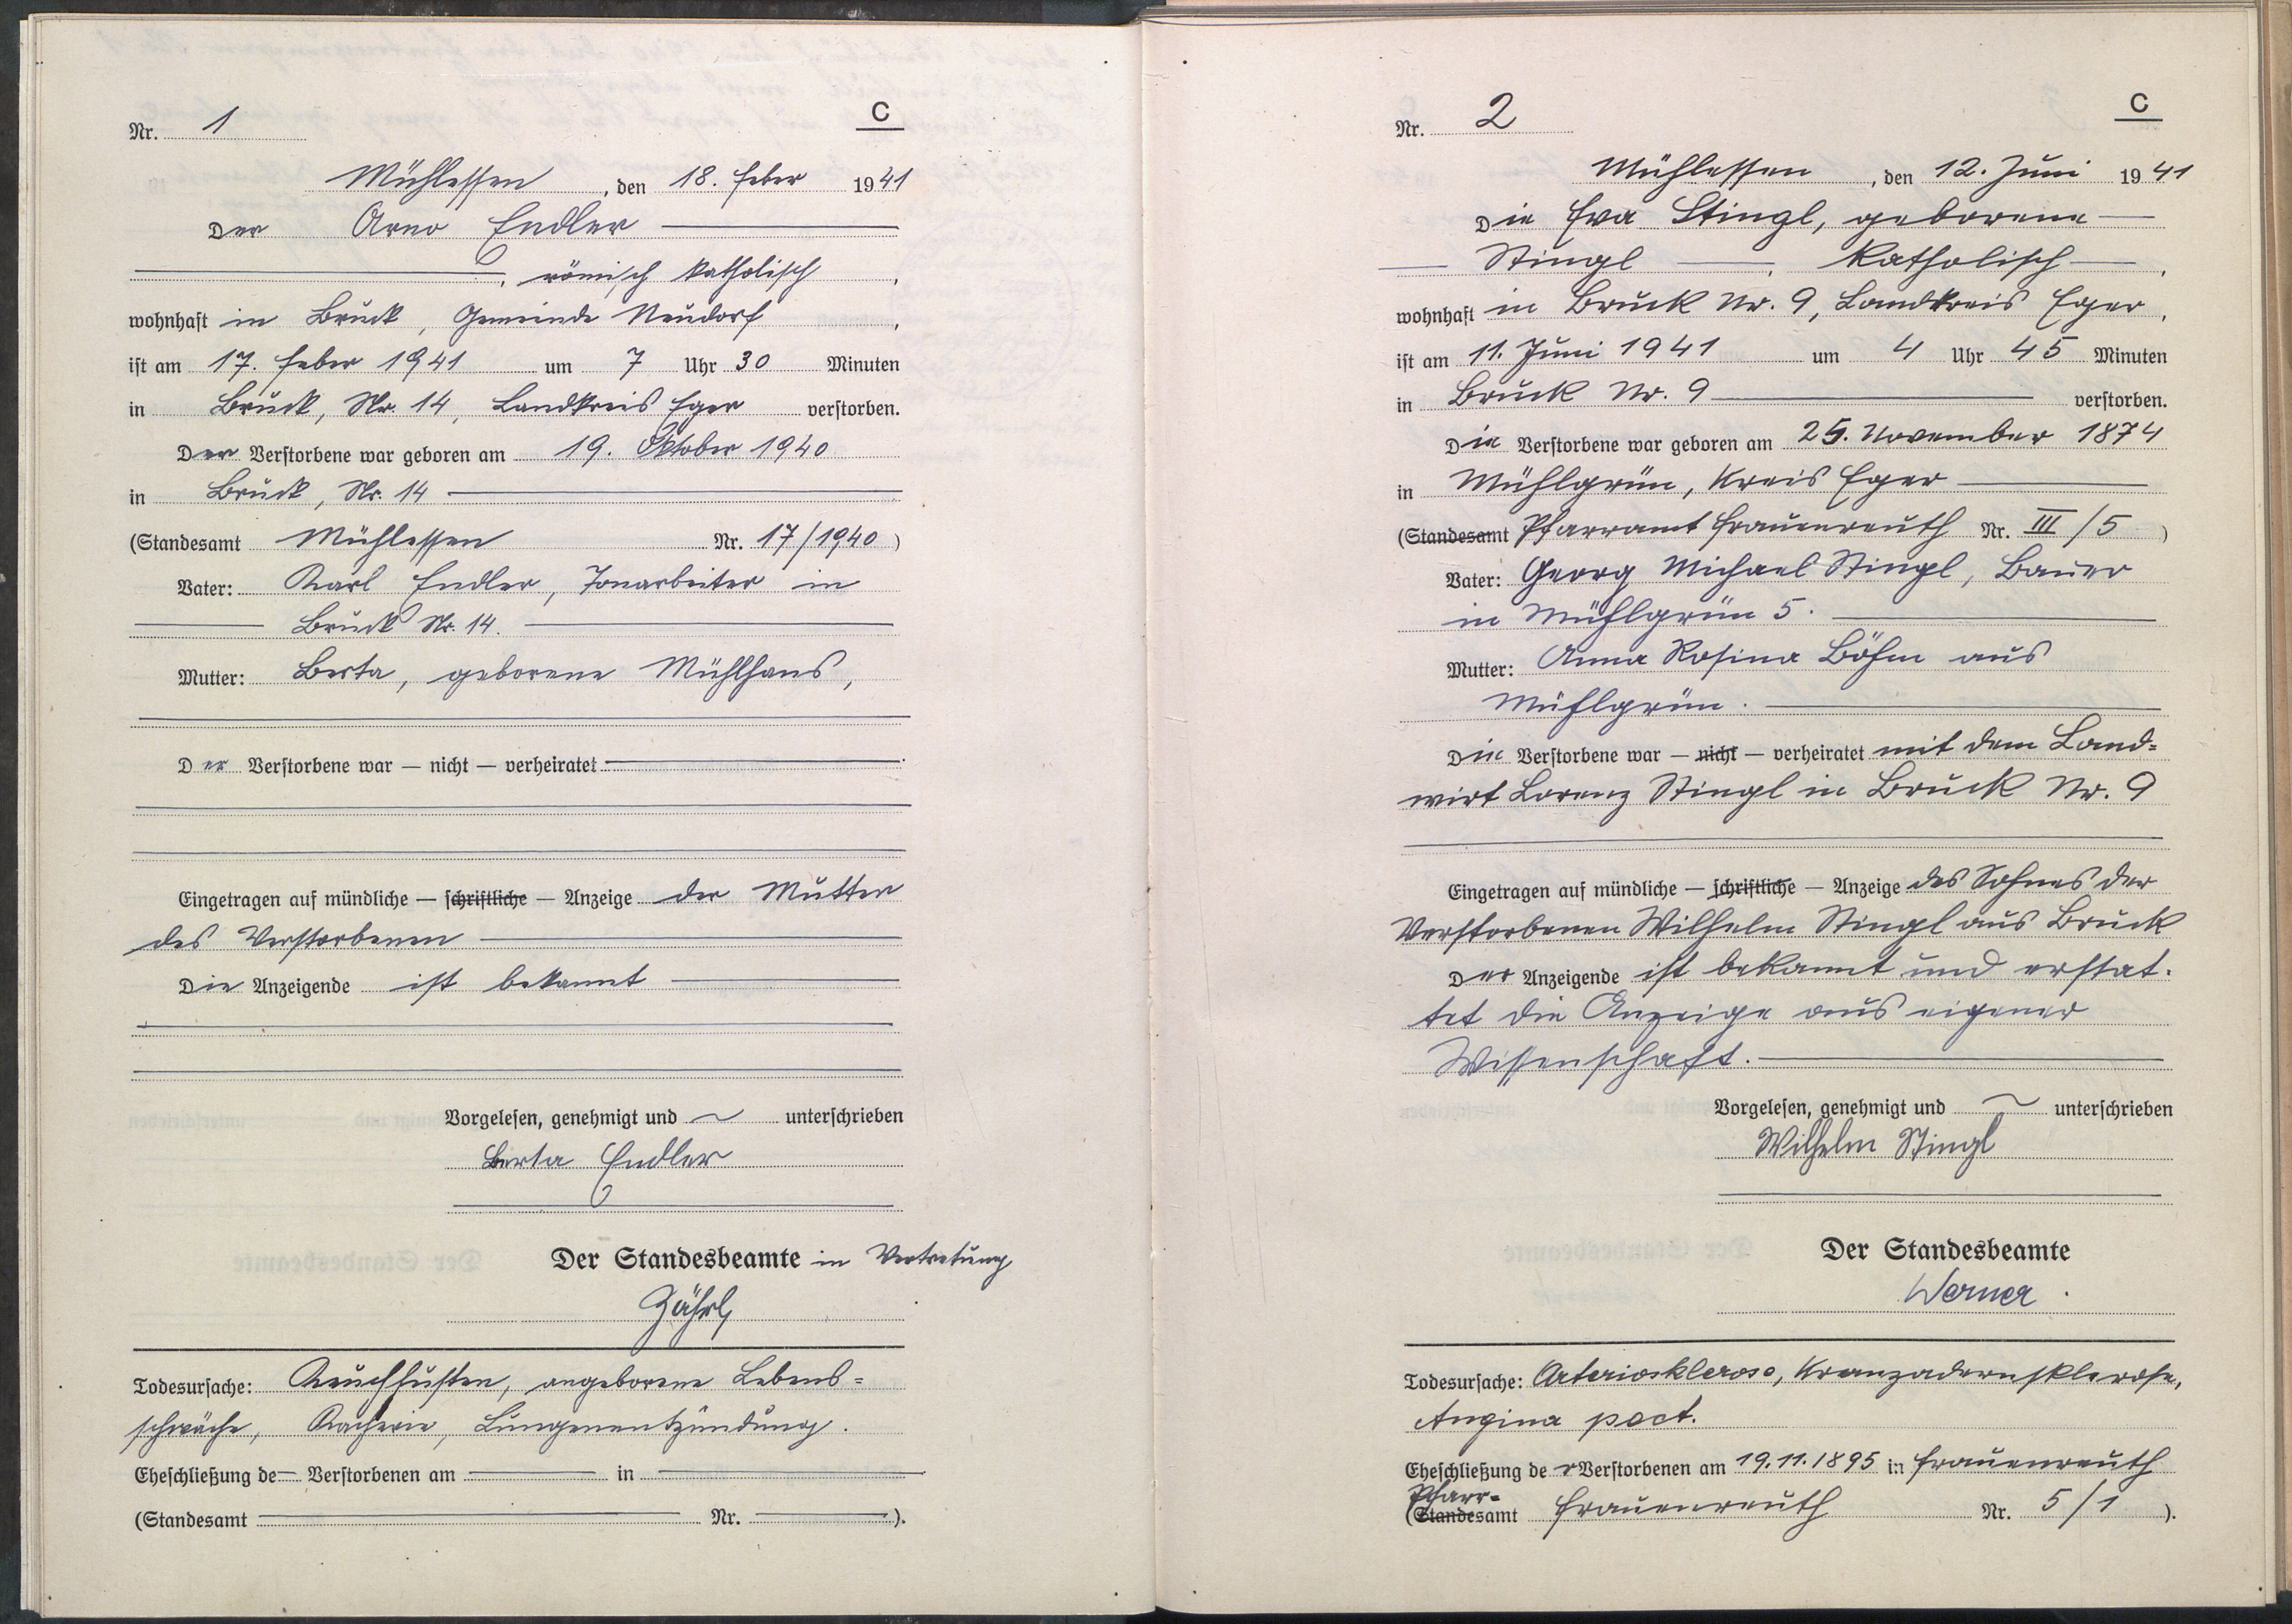 C
Nr. 1
Mühlessen, den 18. Feber 1941
Der Arno Endler
, römisch katholisch,
wohnhaft in Bruck, Gemeinde Neudorf,
ist am 17. Feber 1941 um 7 Uhr 30 Minuten
in Bruck, Nr. 14, Landkreis Eger verstorben.
Der Verstorbene war geboren am 19. Oktober 1940
in Bruck, Nr. 14
(Standesamt Mühlessen Nr. 17/1940)
Vater: Karl Endler, Tonarbeiter in
Bruck Nr. 14.
Mutter: Berta, geborene Mühlhans,
Der Verstorbene war — nicht — verheiratet
Eingetragen auf mündliche — schriftliche — Anzeige der Mutter
des Verstorbenen
Die Anzeigende ist bekannt
Vorgelesen, genehmigt und unterschrieben
Berta Endler
Der Standesbeamte in Vertretung
Todesursache: Keuchhusten, angeborene Lebens=
schwäche, Kachexie, Lungenentzündung.
Eheschließung de— Verstorbenen am — in —
(Standesamt — Nr. —).
C
Nr. 2
Mühlessen, den 12. Juni 1941
Die Eva Stingl, geborene
Stingl, Katholisch,
wohnhaft in Bruck Nr. 9, Landkreis Eger,
ist am 11. Juni 1941 um 4 Uhr 45 Minuten
in Bruck Nr. 9 verstorben.
Die Verstorbene war geboren am 25. November 1874
in Mühlgrün, Kreis Eger
(Standesamt Pfarramt Frauenreuth Nr. III/5)
Vater: Georg Michael Stingl, Bauer
in Mühlgrün 5.
Mutter: Anna Rosina Böhm aus
Mühlgrün.
Die Verstorbene war — nicht — verheiratet mit dem Land=
wirt Lorenz Stingl in Bruck Nr. 9
Eingetragen auf mündliche — schriftliche — Anzeige des Sohnes der
Verstorbenen Wilhelm Stingl aus Bruck
Der Anzeigende ist bekannt und erstat-
tet die Anzeige aus eigener
Wissenschaft.
Vorgelesen, genehmigt und unterschrieben
Wilhelm Stingl
Der Standesbeamte
Werner.
Todesursache: Arteriosklerose, Kranzadernsklerose,
Angina pect.
Eheschließung der Verstorbenen am 19.11.1895 in Frauenreuth
Pfarr=
(Standesamt Frauenreuth Nr. 5/1).